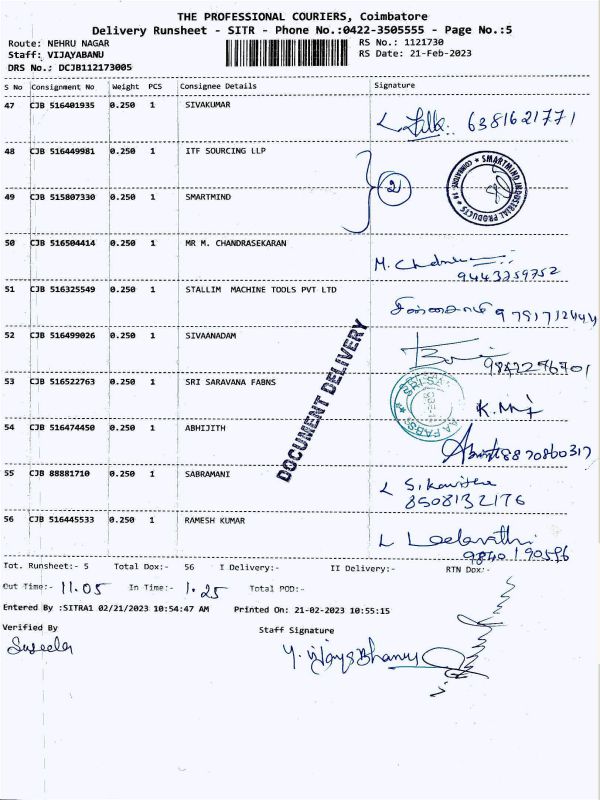 THE PROFESSIONAL COURIERS, Coimbatore
Delivery Runsheet - SITR - Phone No.:0422-3505555 - Page No.:5
Route: NEHRU NAGAR
RS No.: 1121730
Staff: VIJAYABANU
RS Date: 21-Feb-2023
DRS No.: DCJB112173005
S No Consignment No Weight PCS Consignee Details Signature
47 CJB 516401935 0.250 1 SIVAKUMAR
6381621771
48 CJB 516449981 0.250 1 ITF SOURCING LLP
2
SMARTMIND INDUSTRIAL PRODUCTS
49 CJB 515807330 0.250 1 SMARTMIND
50 CJB 516504414 0.250 1 MR M. CHANDRASEKARAN
9443259752
51 CJB 516325549 0.250 1 STALLIM MACHINE TOOLS PVT LTD
52 CJB 516499026 0.250 1 SIVAANADAM
53 CJB 516522763 0.250 1 SRI SARAVANA FABNS
54 CJB 516474450 0.250 1 ABHIJITH
8870860317
DOCUMENT DELIVERY
55 CJB 88881710 0.250 1 SABRAMANI
8508132176
56 CJB 516445533 0.250 1 RAMESH KUMAR
Tot. Runsheet:- 5 Total Dox:- 56 I Delivery:- II Delivery:- RTN Dox:-
Out Time:- 11.05 In Time:- 1.25 Total POD:-
Entered By :SITRA1 02/21/2023 10:54:47 AM Printed On: 21-02-2023 10:55:15
Verified By
Staff Signature
Suseela